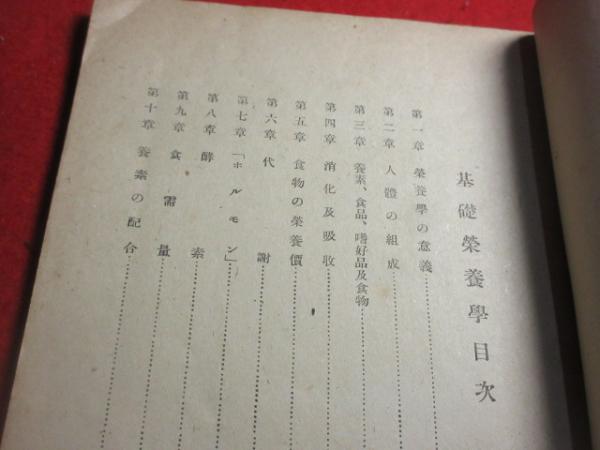 基礎榮養學目次
第一章 榮養學の意義
第二章 人體の組成
第三章 養素、食品、嗜好品及食物
第四章 消化及吸收
第五章 食物の榮養價
第六章 代謝
第七章 「ホルモン」
第八章 酵素
第九章 食需量
第十章 養素の配合